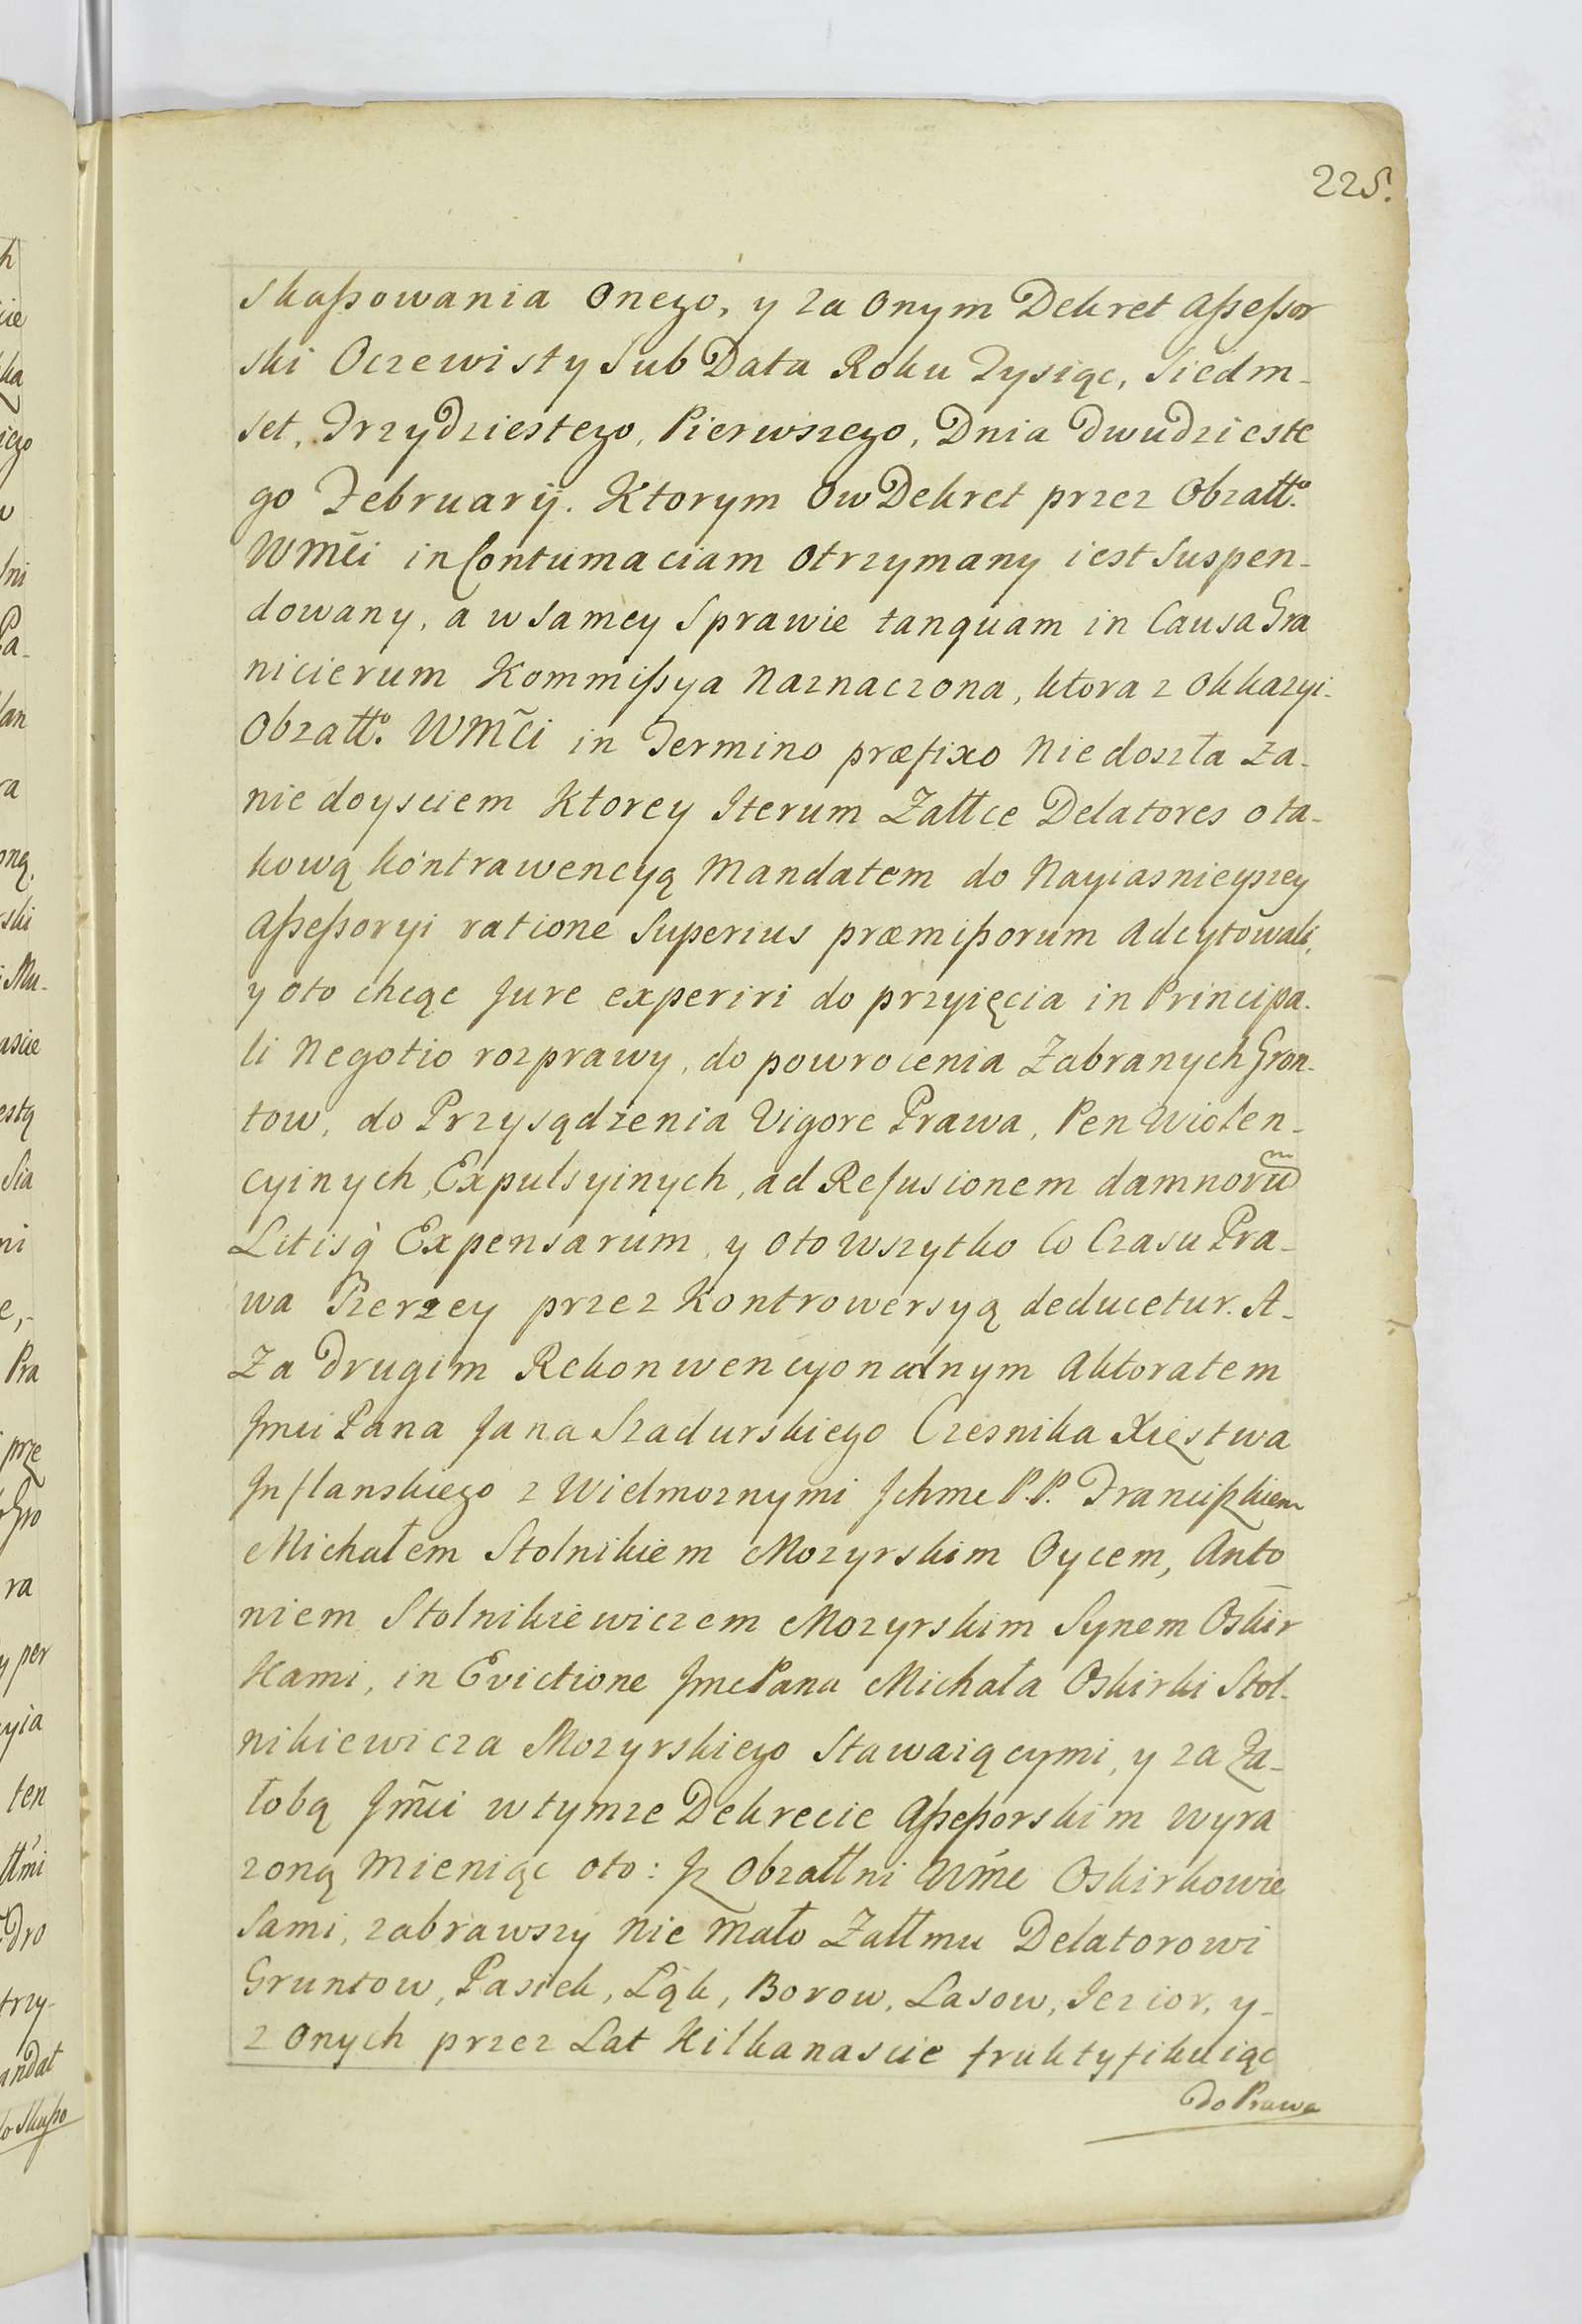 225.
Skaßowania Onego, y za Onym Dekret Aßeßor
ski Oczewisty Sub Data Roku Tysiąc, Siedm-
set, Trzydziestego, Pierwszego, Dnia Dwudzieste
go February. Ktorym Ow Dekret przez Obzałł.o
WMci in Contumaciam Otrzymany iest Suspen-
dowany, a w Samey Sprawie tanquam in Causa Gra
nicierum Kommißya Naznaczona, ktora z Okkazyi-
Obzałł.o WMci in Termino præfixo Nie doszła za-
nie doysciem Ktorey Iterum Załłce Delatores o ta-
kową kontrawencyą Mandatem do Nayiasnieyszey
Aßeßoryi ratione Superius præmißorum Adcytowali,
y oto chcąc Jure experiri do przyięcia in Principa-
li Negotio rozprawy, do powrocenia Zabranych Gron-
tow, do Przysądzenia Vigore Prawa, Pen Wiolen-
cyinych, Expulsyinych, ad Refusionem damnorum
Litisq Expensarum, y oto Wszytko Co Czasu Pra-
wa Szerzey przez Kontrowersyą deducetur. A-
Za Drugim Rekonwencyonalnym Aktoratem
Jmci Pana Jana Szadurskiego Czesnika Xięstwa
Inflanskiego z Wielmoznymi Jchmc P.P. Franciszkiem
Michałem Stolnikiem Mozyrskim Oycem, Anto
niem Stolnikiewiczem Mozyrskim Synem Oskir
Kami, in Evictione Jmc Pana Michała Oskirki Stol-
nikiewicza Mozyrskiego Stawaiącymi, y za Za-
łobą Jmci w tymze Dekrecie Aßeßorskim Wyra
zoną Mieniąc oto: Jz Obzałłni Wmc Oskirkowie
Sami, zabrawszy Nie mało Załłmu Delatorowi
Gruntow, Pasiek, Łąk, Borow, Lasow, Jezior, y-
z Onych przez Lat Kilkanascie fruktyfikuiąc
do Prawa